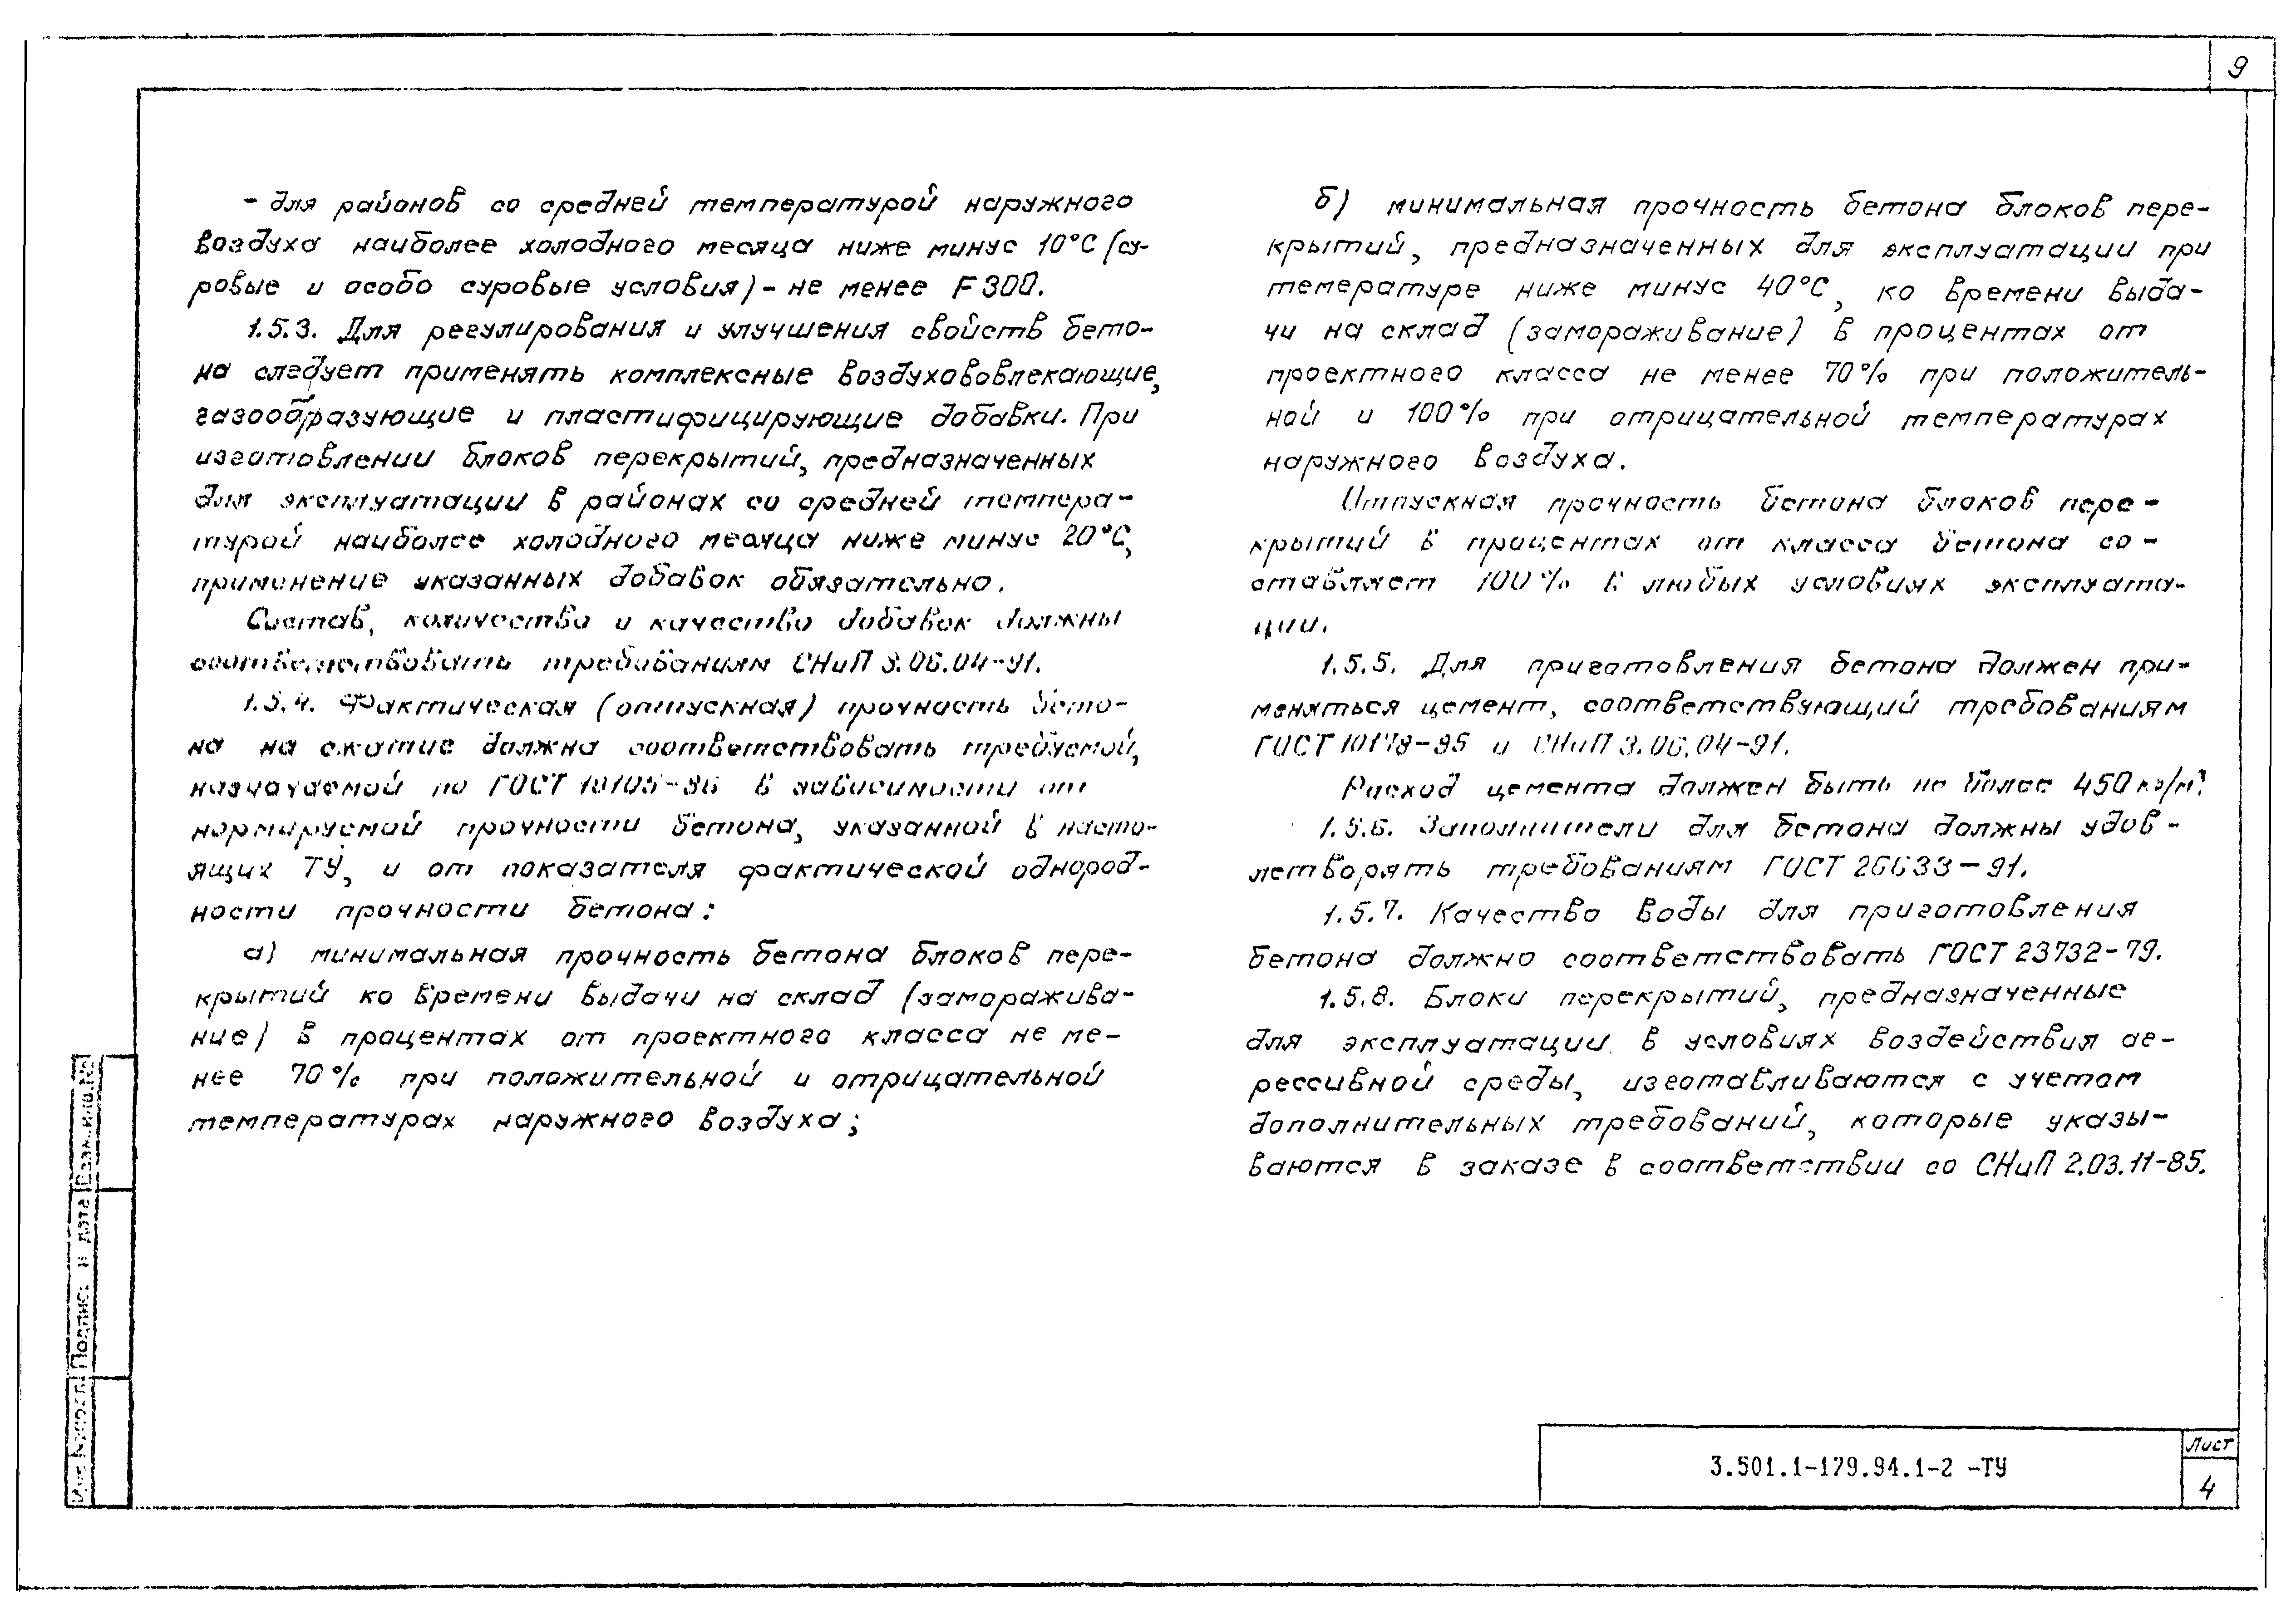 9
- для районов со средней температурой наружного
воздуха наиболее холодного месяца ниже минус 10°С (су-
ровые и особо суровые условия) - не менее F300.
1.5.3. Для регулирования и улучшения свойств бето-
на следует применять комплексные воздухововлекающие,
газообразующие и пластифицирующие добавки. При
изготовлении блоков перекрытий, предназначенных
для эксплуатации в районах со средней темпера-
турой наиболее холодного месяца ниже минус 20°С,
применение указанных добавок обязательно.
Состав, количество и качество добавок должны
соответствовать требованиям СНиП 3.06.04-91.
1.5.4. Фактическая (отпускная) прочность бето-
на на сжатие должна соответствовать требуемой,
назначаемой по ГОСТ 18105-86 в зависимости от
нормируемой прочности бетона, указанной в насто-
ящих ТУ, и от показателя фактической однород-
ности прочности бетона:
а) минимальная прочность бетона блоков пере-
крытий ко времени выдачи на склад (заморажива-
ние) в процентах от проектного класса не ме-
нее 70% при положительной и отрицательной
температурах наружного воздуха;
б) минимальная прочность бетона блоков пере-
крытий, предназначенных для эксплуатации при
темературе ниже минус 40°С, ко времени выда-
чи на склад (замораживание) в процентах от
проектного класса не менее 70% при положитель-
ной и 100% при отрицательной температурах
наружного воздуха.
Отпускная прочность бетона блоков пере-
крытий в процентах от класса бетона со-
ставляет 100% в любых условиях эксплуата-
ции.
1.5.5. Для приготовления бетона должен при-
меняться цемент, соответствующий требованиям
ГОСТ 10178-85 и СНиП 3.06.04-91.
Расход цемента должен быть не более 450 кг/м³.
1.5.6. Заполнители для бетона должны удов-
летворять требованиям ГОСТ 26633-91.
1.5.7. Качество воды для приготовления
бетона должно соответствовать ГОСТ 23732-79.
1.5.8. Блоки перекрытий, предназначенные
для эксплуатации в условиях воздействия аг-
рессивной среды, изготавливаются с учетом
дополнительных требований, которые указы-
ваются в заказе в соответствии со СНиП 2.03.11-85.
Взам.инв.№
Подпись и дата
Инв.№подл.
3.501.1-179.94.1-2 -ТУ
Лист
4